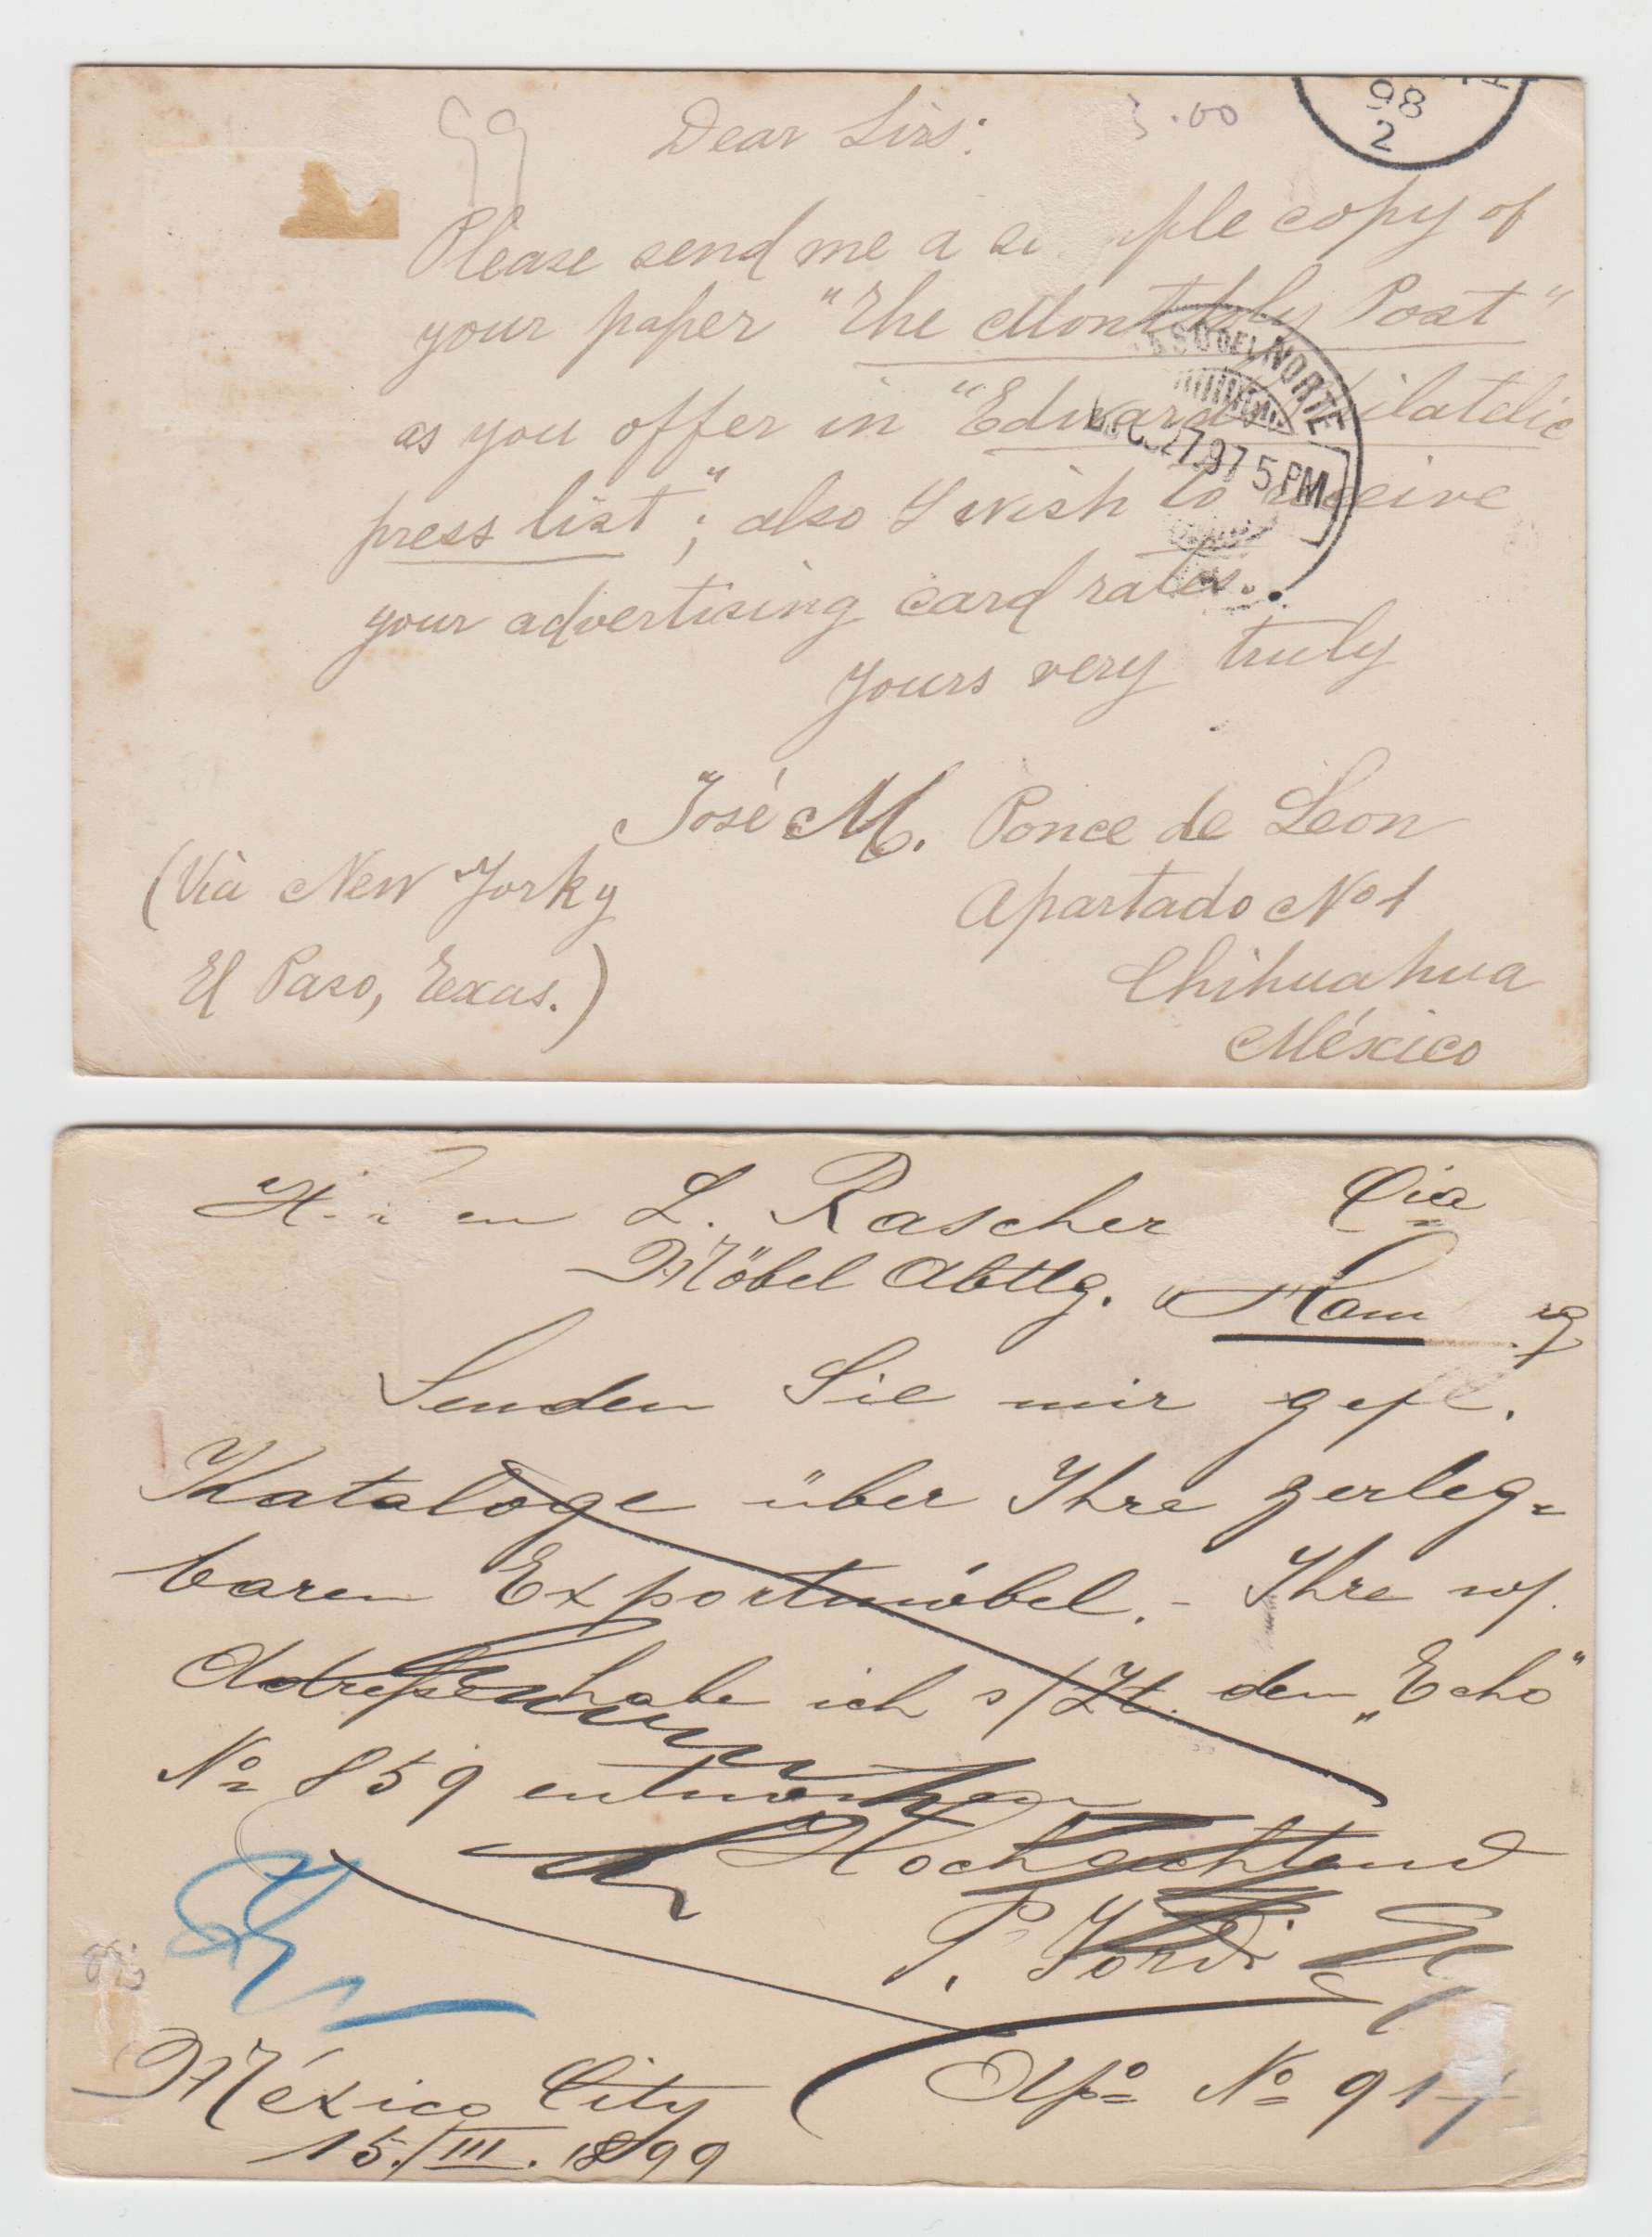 99
Dear Sirs:
3.00
98
2
Please send me a sa ple copy of
your paper "The Monthly Post"
as you offer in "Edward's Philatelic
press list"; also I wish to receive
your advertising card rates.
Yours very truly
PASO DEL NORTE
27.97 5 PM
José M. Ponce de Leon
Apartado No 1
Chihuahua
México
(Via New York y
El Paso, Texas.)
L. Rascher
Möbel Abtlg.
Via
Ham rg
Senden Sie mir gefl.
Kataloge über Ihre zerleg=
baren Exportmöbel. - Ihre w.
Adresse habe ich s/Zt. dem „Echo"
No 859 entnommen
Hochachtend
P.
Apo No 917
México City
15./III. 1899